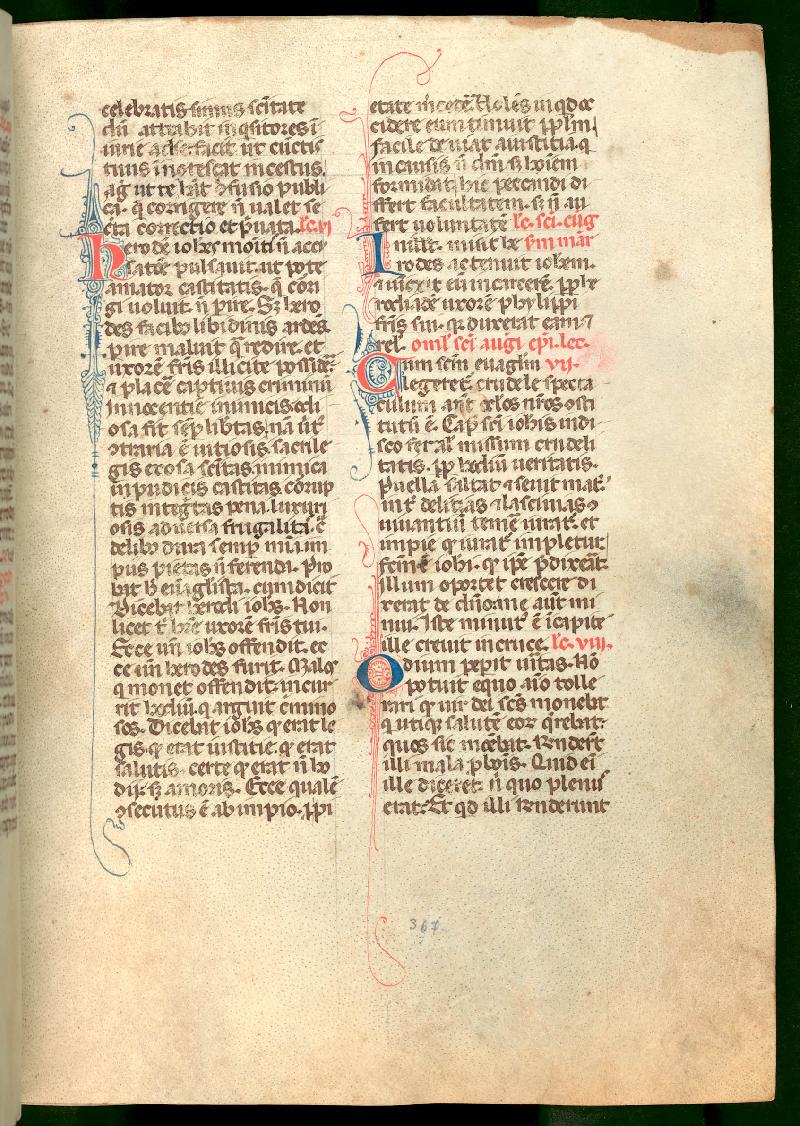 celebratis sinus scitate
dū attrahit inqsitores ī
iurie ad se. facit ut cūctis
tuus inotescat incestus.
agit te hāt ɔfusio publi
ca. q̄ corrigere n̄ ualet se
creta correctio et p̄uata. lc. vi
Herodē ioħes moīti n̄ accu
satōe pulsauit. ut pote
amator castitatis. q̄ corri
gi uoluit. n̄ pire. Sꝫ hero
des facib⁹ libidinis ardēs.
pire maluit q̄ redire. et
uxorē fris illicite possidē.
⁊ placē captiuis criminū
innocentie inimicis. odi
osa fit sēp libtas. nā ūt̄
ɔtraria ē uitiosis. sacrile
gis exosa scitas. inimica
inpudicis castitas. corup
tis integtas pena. luxuri
osis aduersa frugalitas. c̄
delib⁹ dura semp mī. im
pus pietas n̄ ferendi. Pro
bat h̄ euāglista. cum dicit
Dicebat herodi ioħs. Non
licet t̄ hr̄e uxorē fris tui.
Ecce un̄ ioħs offendit. ec
ce un̄ herodes furit. Malos
q monet offendit. incur
rit hodiū. q arguit crimino
sos. Dicebat ioħs q̄ erat le
gis. q̄ erat iustitie. q̄ erat
salutis. certe q̄ erat n̄ ho
diı̄. sꝫ amoris. Ecce qualē
ɔsecutus ē ab impio. ꝓpi
etate mcedē. Noles uı qd oc
cidere eum timuit ꝓp plm
facile deuiat a iustitia. q
in causis n̄ dm̄. sꝫ hoiēm
formidat. hic peccandi di
ffert facultatem. sꝫ n̄ au
fert uoluntatē lc. sci. eug
In illt. misit he s̄m mar
rodes ac tenuit ioħem.
⁊ uixit eū in carcerē. ꝓp he
rodiadē uxorē phylippi
fris sui. q̄ duxerat eam. ⁊
rel. oml̄ sci augi epi. lec.
Cum scm̄ euaglm vii.
legeretꝛ. crudele specta
culum ant̄ oclos nr̄os ɔsti
tutū ē. Cap̄ sci ioħis in di
sco feral̄ missum crudeli
tatis. ꝓp hodiū ueritatis.
Puella saltat ⁊ seuit mat̄.
int̄ delitias ⁊ lasciuias ɔ
uiuantiū temē iurat̄. et
impie q̄ iurat̄ impletur.
fcm̄ ē ioħi. q̄ ipe p̄dixat.
Illum oportet crescere di
xerat de dn̄o. me aut̄ mi
nui. Iste minut̄ ē i capite
ille creuit in cruce. lc. viii.
Odium pep̄it uītas. Nō
potuit equo aīo tolle
rari q̄ uir dei scs monebat
q utiq̄ salutē eoꝝ q̄rebat.
quos sic mōebat. Rn̄dert̄
illi mala ꝓ bōis. Quid eī
ille diceret. n̄ quo plenus
erat. Et qd illi rn̄derunt
367